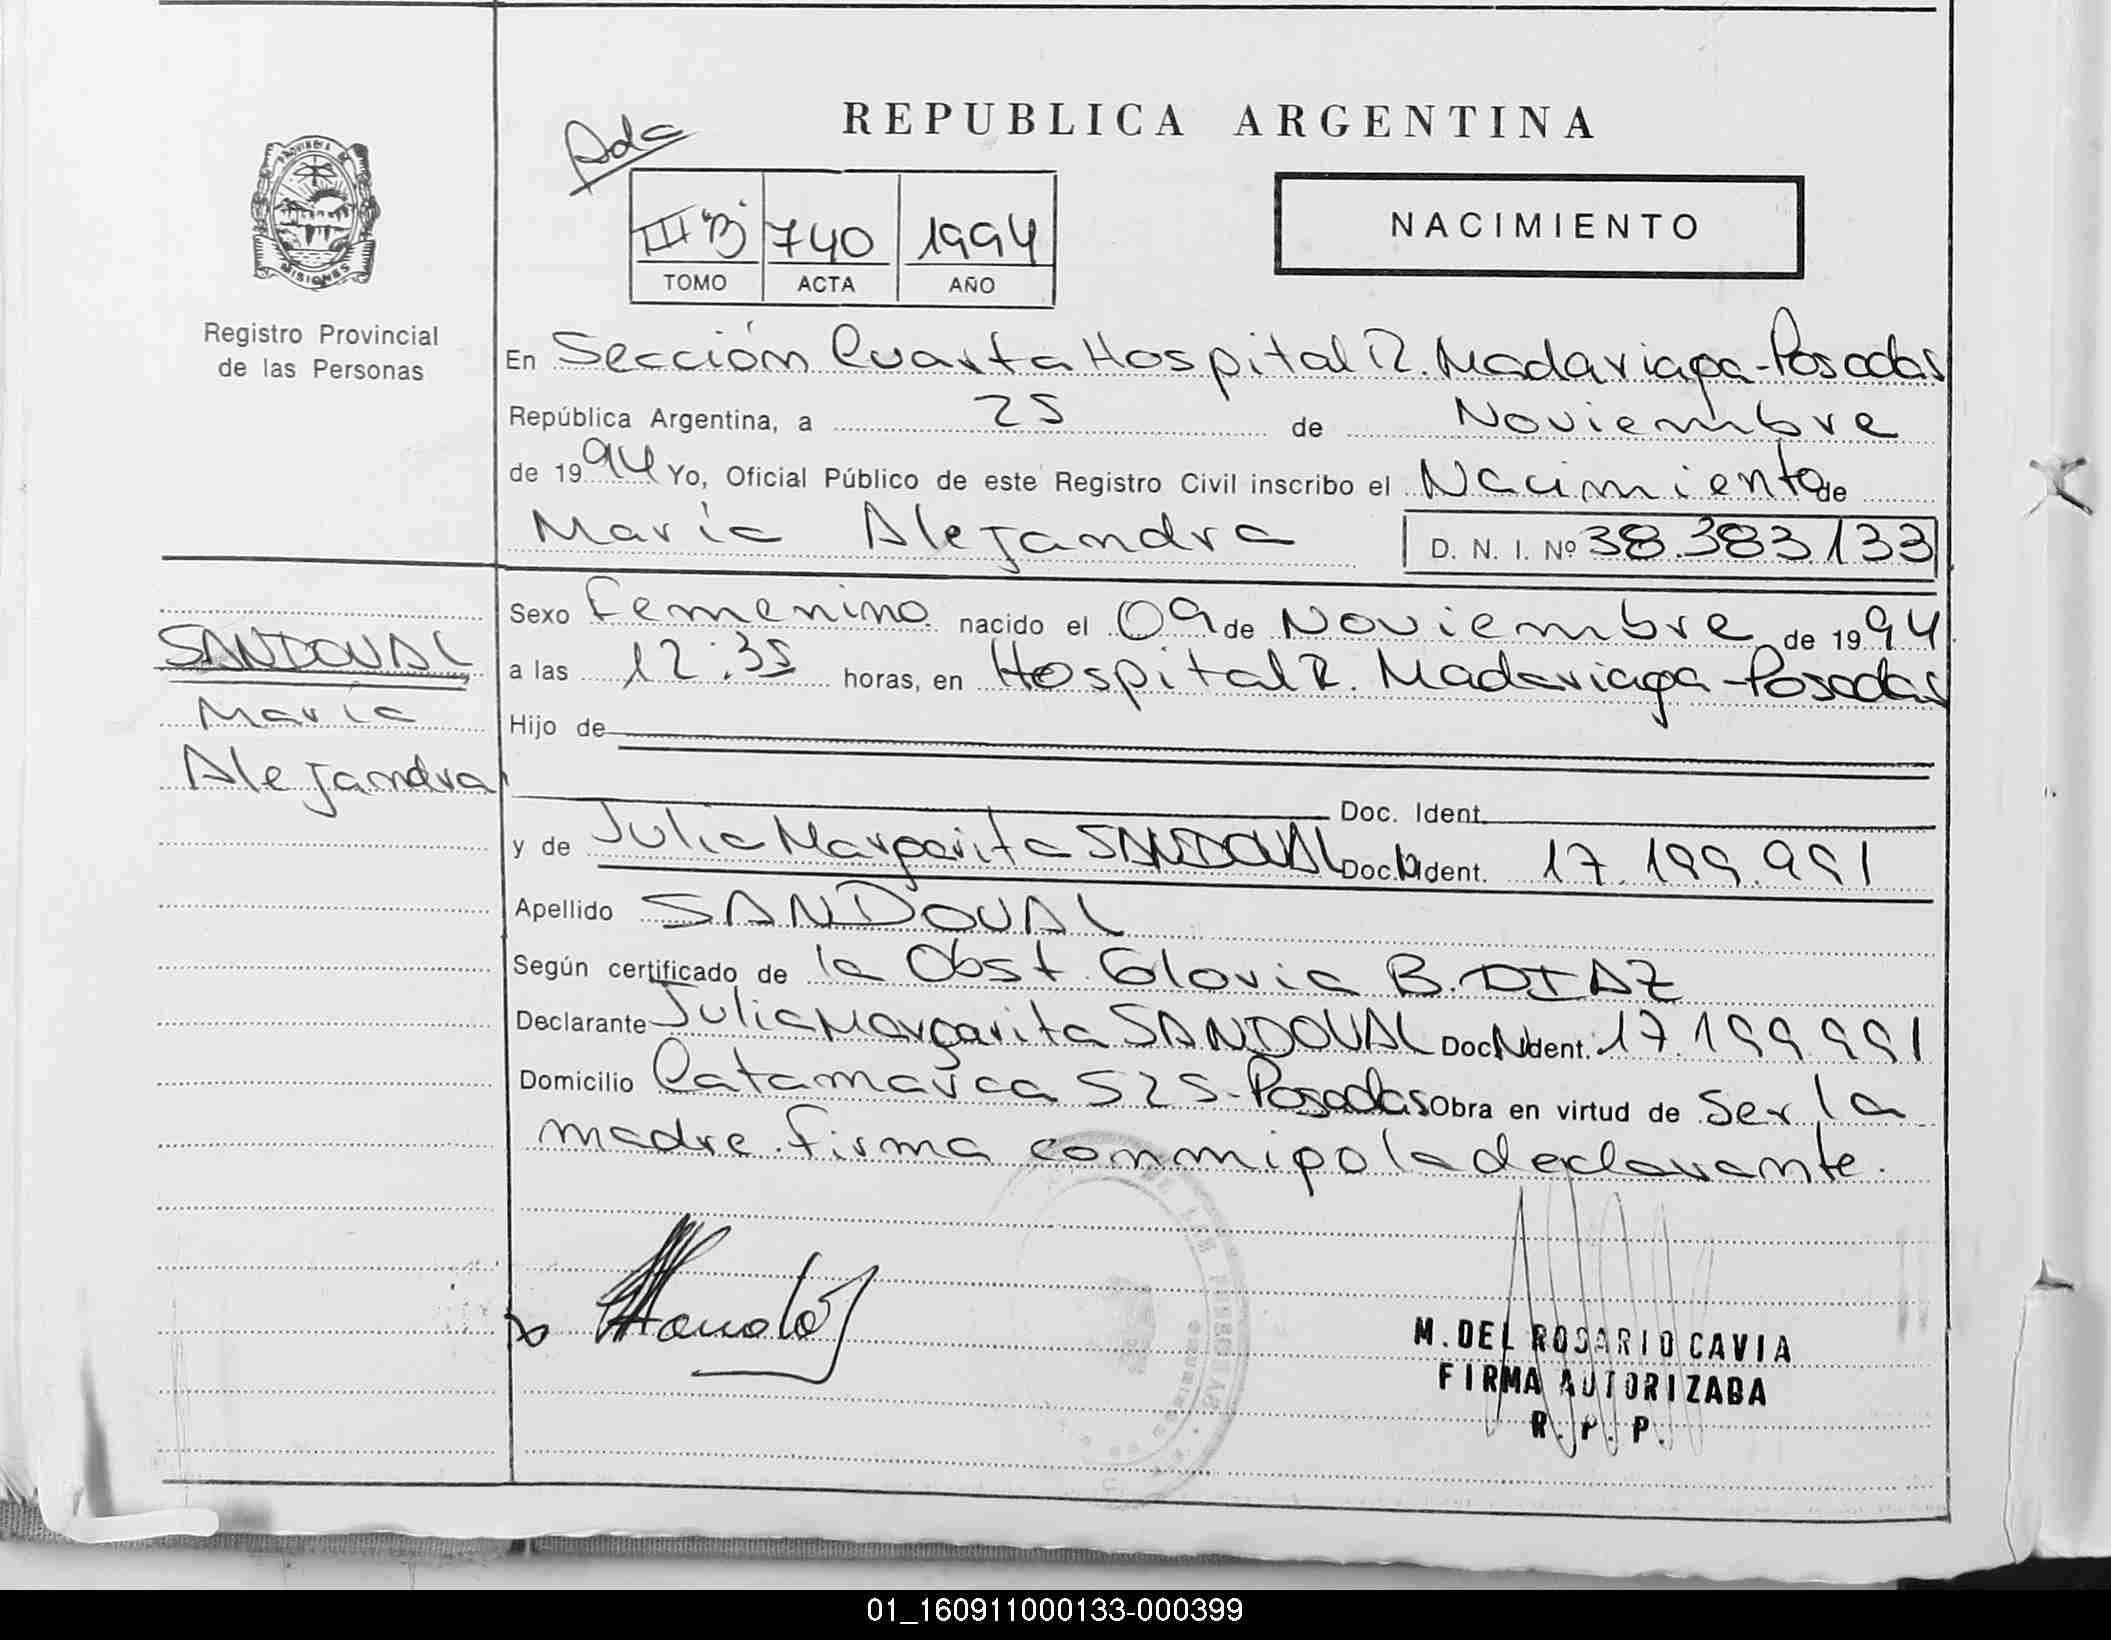 REPUBLICA ARGENTINA
Ada
III "B" 740 1994
TOMO ACTA AÑO
NACIMIENTO
PROVINCIA DE
MISIONES
Registro Provincial
de las Personas
En Sección Cuarta Hospital R. Madariaga-Posadas
República Argentina, a 25 de Noviembre
de 1994 Yo, Oficial Público de este Registro Civil inscribo el Nacimiento de
María Alejandra D. N. I. Nº 38.383.133
Sexo Femenino nacido el 09 de Noviembre de 1994
a las 12:35 horas, en Hospital R. Madariaga-Posadas
Hijo de
Doc. Ident.
y de Julia Margarita SANDOVAL Doc. Ident. 17.199.991
Apellido SANDOVAL
Según certificado de la Obst. Gloria B. DIAZ
Declarante Julia Margarita SANDOVAL Doc. Ident. 17.199.991
Domicilio Catamarca 525-Posadas Obra en virtud de Ser la
madre. firma conmigo la declarante.
SANDOVAL
María
Alejandra
M. DEL ROSARIO CAVIA
FIRMA AUTORIZADA
R. P. P.
01_160911000133-000399